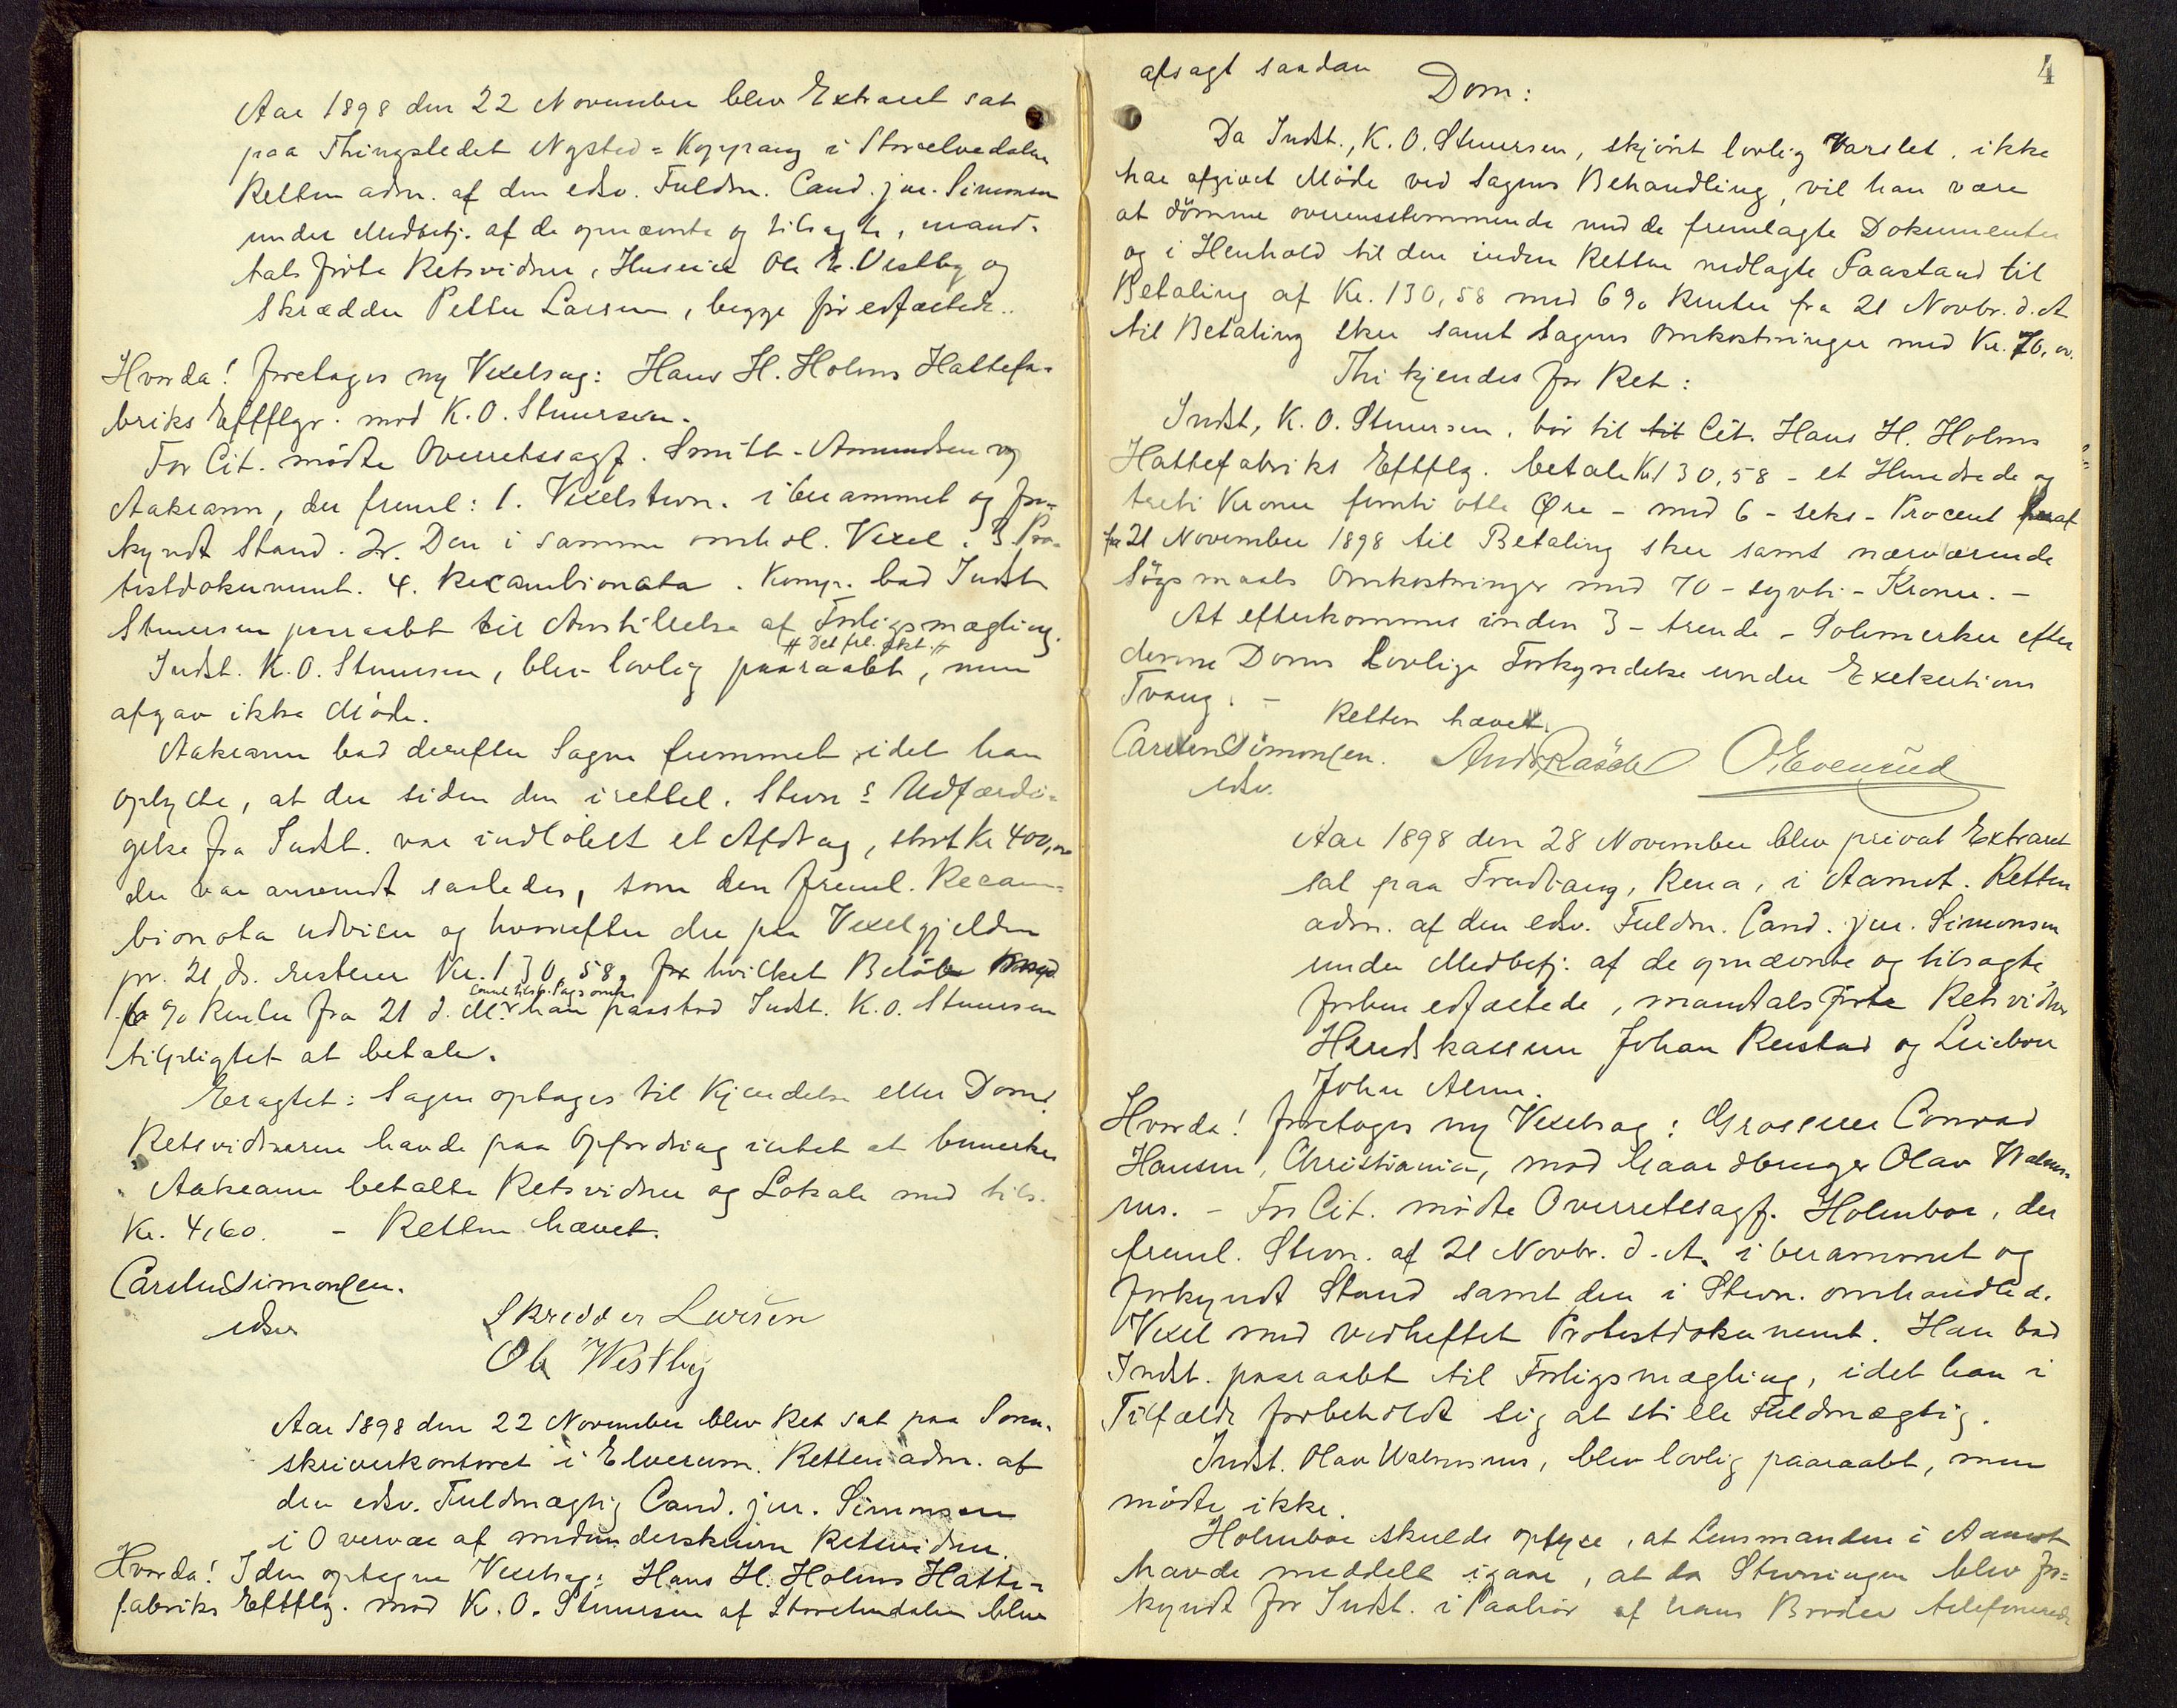 Aar 1898 den 22 November blev Extraret sat
paa Thingstedet Nysted = Koppang i Storelvedalen
Retten adm. af den edsv. Fuldm. Cand. jur. Simonsen
under Medbetj. af de opnævnte og tilsagte, mand-
tals førte Retsvidner, Huseier Ole Westby og
Skrædder Petter Larsen, begge før edfæstede..
Hvorda! foretoges ny Vexelsag: Hans H. Holms Hattefa-
briks Eftflgr. mod K. O. Stuursen.
For Cit. mødte Overretssagf. Smith-Amundsen ved
Aakrann, der freml: 1. Vexelstevn. i berammet og for-
kyndt Stand. 2. Den i samme omhdl. Vexel. 3 Pro-
testdokument. 4. Recambionota. Komp. bad Indst
Stuursen paaraabt til Anstillelse af Forligsmægling.
# Det frl. økt. #
Indst. K. O. Stuursen, blev lovlig paaraabt, men
afgav ikke Møde.
Aakrann bad derefter Sagen fremmet, idet han
oplyste, at der siden den irettel. Stevns Udfærdi-
gelse fra Indst. var indløbet et Afdrag, stort Kr 400,00
der var anvendt saaledes, som den freml. Recam-
bionota udviser og hvorefter der paa Vexelgjælden
pr. 21 ds. resterer Kr. 130,58, for hvilket Beløb
samt tils. Sagsomk.
6 % Renter fra 21 d. M. han paastod Indst. K. O. Stuursen
tilpligtet at betale.
Eragtet: Sagen optages til Kjendelse eller Dom.
Retsvidnerne havde paa Opfordring intet at bemerke
Aakrann betalte Retsvidner og Lokale med tils.
Kr. 4,60. - Retten hævet.
Carsten Simonsen.
edsv
Skredder Larsen
Ole Westby
Aar 1898 den 22 November blev Ret sat paa Soren-
skriverkontoret i Elverum. Retten adm. af
den edsv. Fuldmægtig Cand. jur. Simonsen
i Overvær af medunderskrevne Retsvidner.
Hvorda! I den optagne Vexelsag: Hans H. Holms Hatte-
fabriks Eftflg. mod K. O. Stuursen af Storelvedalen blev
4
afsagt saadan
Dom:
Da Indst., K. O. Stuursen, skjønt lovlig Varslet, ikke
har afgivet Møde ved Sagens Behandling, vil han være
at dømme overensstemmende med de fremlagte Dokumenter
og i Henhold til den inden Retten nedlagte Paastand til
Betaling af Kr. 130,58 med 6 % Renter fra 21 Novbr. d. A
til Betaling sker samt Sagens Omkostninger med Kr. 70,00.
Thi kjendes for Ret:
Indst, K. O. Stuursen, bør til til Cit. Hans H. Holms
Hattefabriks Eftflg. betale Kr 130,58 - et Hundrede og
treti Kroner femti otte Øre - med 6 - seks - Procent
fra 21 November 1898 til Betaling sker samt nærværende
Søgsmaals Omkostninger med 70 - sytti - Kroner. -
At efterkommes inden 3 - trende - Solemerker efter
denne Doms Lovlige Forkyndelse under Exekutions
Tvang. -
Retten hævet.
Carsten Simonsen.
edsv.
O. Evenrud
Aar 1898 den 28 November blev privat Extraret
sat paa Trudvang, Rena, i Aamot. Retten
adm. af den edsv. Fuldm. Cand. jur. Simonsen
under Medbetj. af de opnævnte og tilsagte
forhen edfæstede, mandtalsførte Retsvidner
Herredskasserer Johan Reistad og Leiebor
John Alm.
Hvorda! foretoges ny Vexelsag: Grosserer Conrad
Hansen, Christiania, mod Gaardbruger Olav
- For Cit. mødte Overretssagf. Holmboe, der
freml. Stevn. af 21 Novbr. d. A. i berammet og
forkyndt Stand samt den i Stevn. omhandlede
Vexel med vedheftet Protestdokument. Han bad
Indst. paaraabt til Forligsmægling, idet han i
Tilfælde forbeholdt sig at stille Fuldmægtig.
Indst. Olav blev lovlig paaraabt, men
mødte ikke.
Holmboe skulde oplyse, at Lensmanden i Aamot
havde meddelt igaar, at da Stevningen blev for-
kyndt for Indst. i Paahør af hans Broder telefonerede